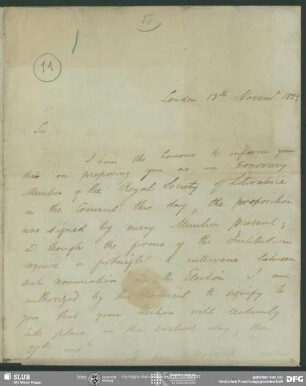 85
11
London 13th Novem.
Sir
I have the honour to inform you
that on proposing you as an Honorary
Member of the Royal Society of Literature
in the Council this day, the proposition
was signed by every Member present;
& though the forms of the Institution
require a fortnight to intervene between
such nomination the Election I am
authorized by the Council to signify to
you that your Election will certainly
take place on the earliest day, the
SLUB
Wir führen Wissen.
DFG